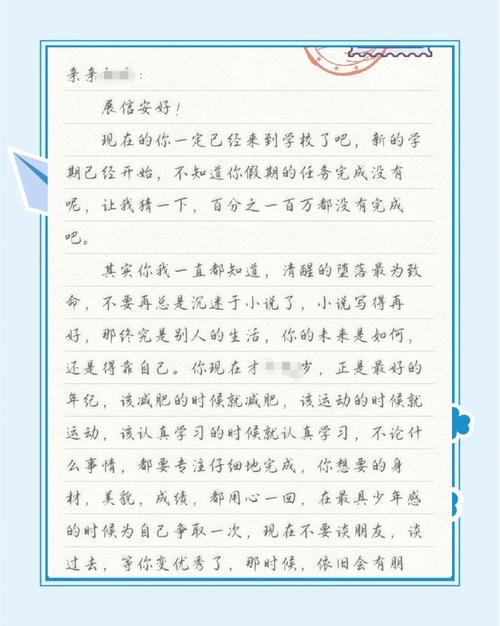 亲亲：
展信安好！
现在的你一定已经来到学校了吧，新的学
期已经开始，不知道你假期的任务完成没有
呢，让我猜一下，百分之一百万都没有完成
吧。
其实你我一直都知道，清醒的堕落最为致
命，不要再总是沉迷于小说了，小说写得再
好，那终究是别人的生活，你的未来是如何，
还是得靠自己。你现在才岁，正是最好的
年纪，该减肥的时候就减肥，该运动的时候就
运动，该认真学习的时候就认真学习，不论什
么事情，都要专注仔细地完成，你想要的身
材，美貌，成绩，都用心一回，在最具少年感
的时候为自己争取一次，现在不要谈朋友，谈
过去，等你变优秀了，那时候，依旧会有朋